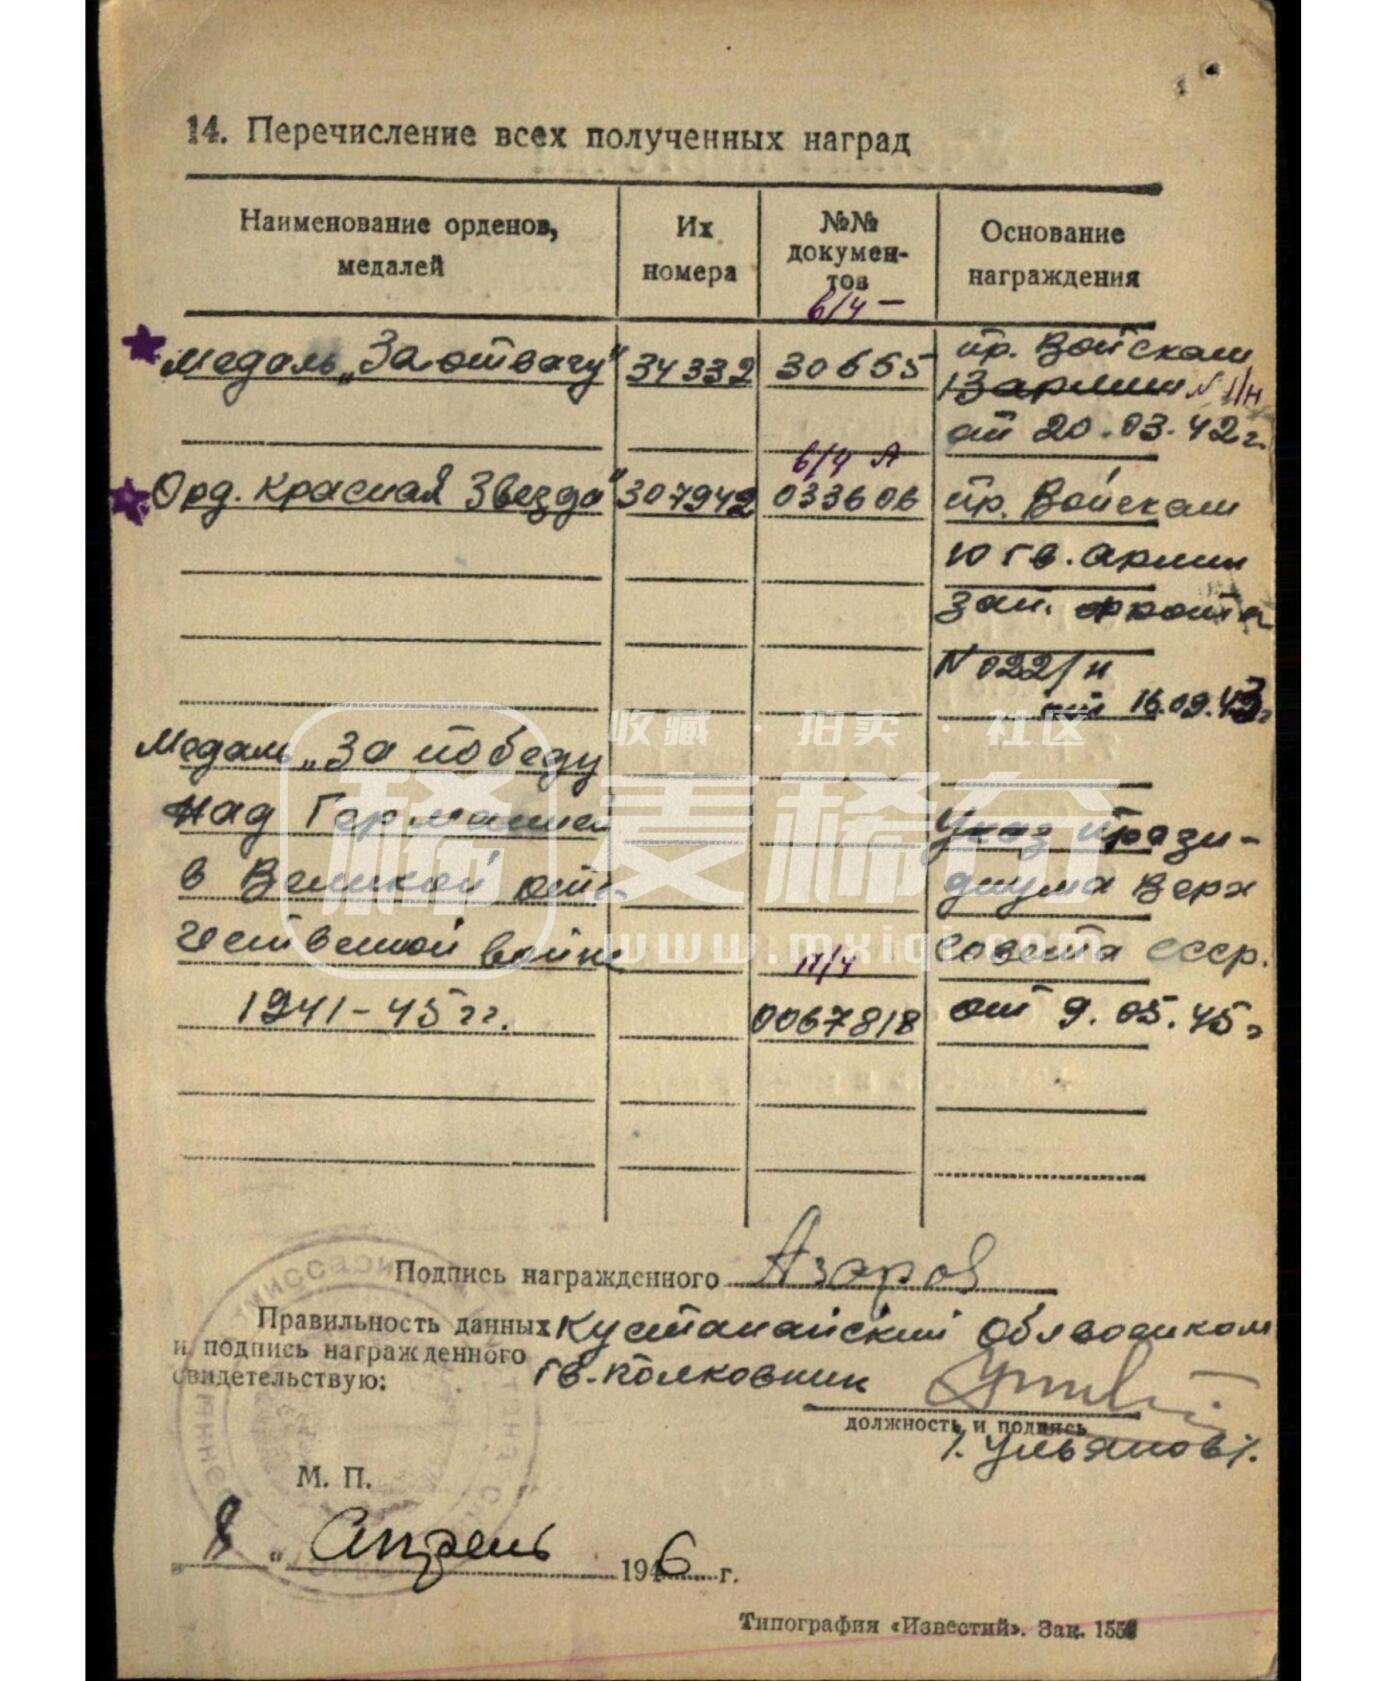 14. Перечисление всех полученных наград
Наименование орденов,
медалей
Их
номера
№№
докумен-
тов
Основание
награждения
б/ч —
Медаль „За отвагу"
34332
30655
пр. Войскам
13 армии N 1/н
от 20.03.42г.
б/ч А
Орд. Красная Звезда"
307942
033606
пр. Войскам
10 гв. армии
Зап. фронта
N 022/н
от 16.09.43г
收藏 · 拍卖 · 社区
稀 麦稀奇
www.mxiqi.com
Медаль „За победу
над Германией
в Великой оте-
чественной войне
1941-45 гг.
0067818
Указ Прези-
диума Верх
Совета СССР.
от 9.05.45г
Подпись награжденного Азаров
Правильность данных
и подпись награжденного
свидетельствую:
Кустанайский Облвоенком
гв. полковник
должность и подпись
/. Ульянов /.
М. П.
8 „ Апрель 1946 г.
Типография «Известий». Зак.